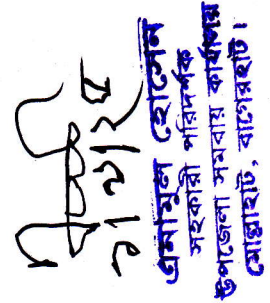 এমামুল হোসেন
সহকারী পরিদর্শক
উপজেলা সমবায় কার্যালয়
মোল্লাহাট, বাগেরহাট।